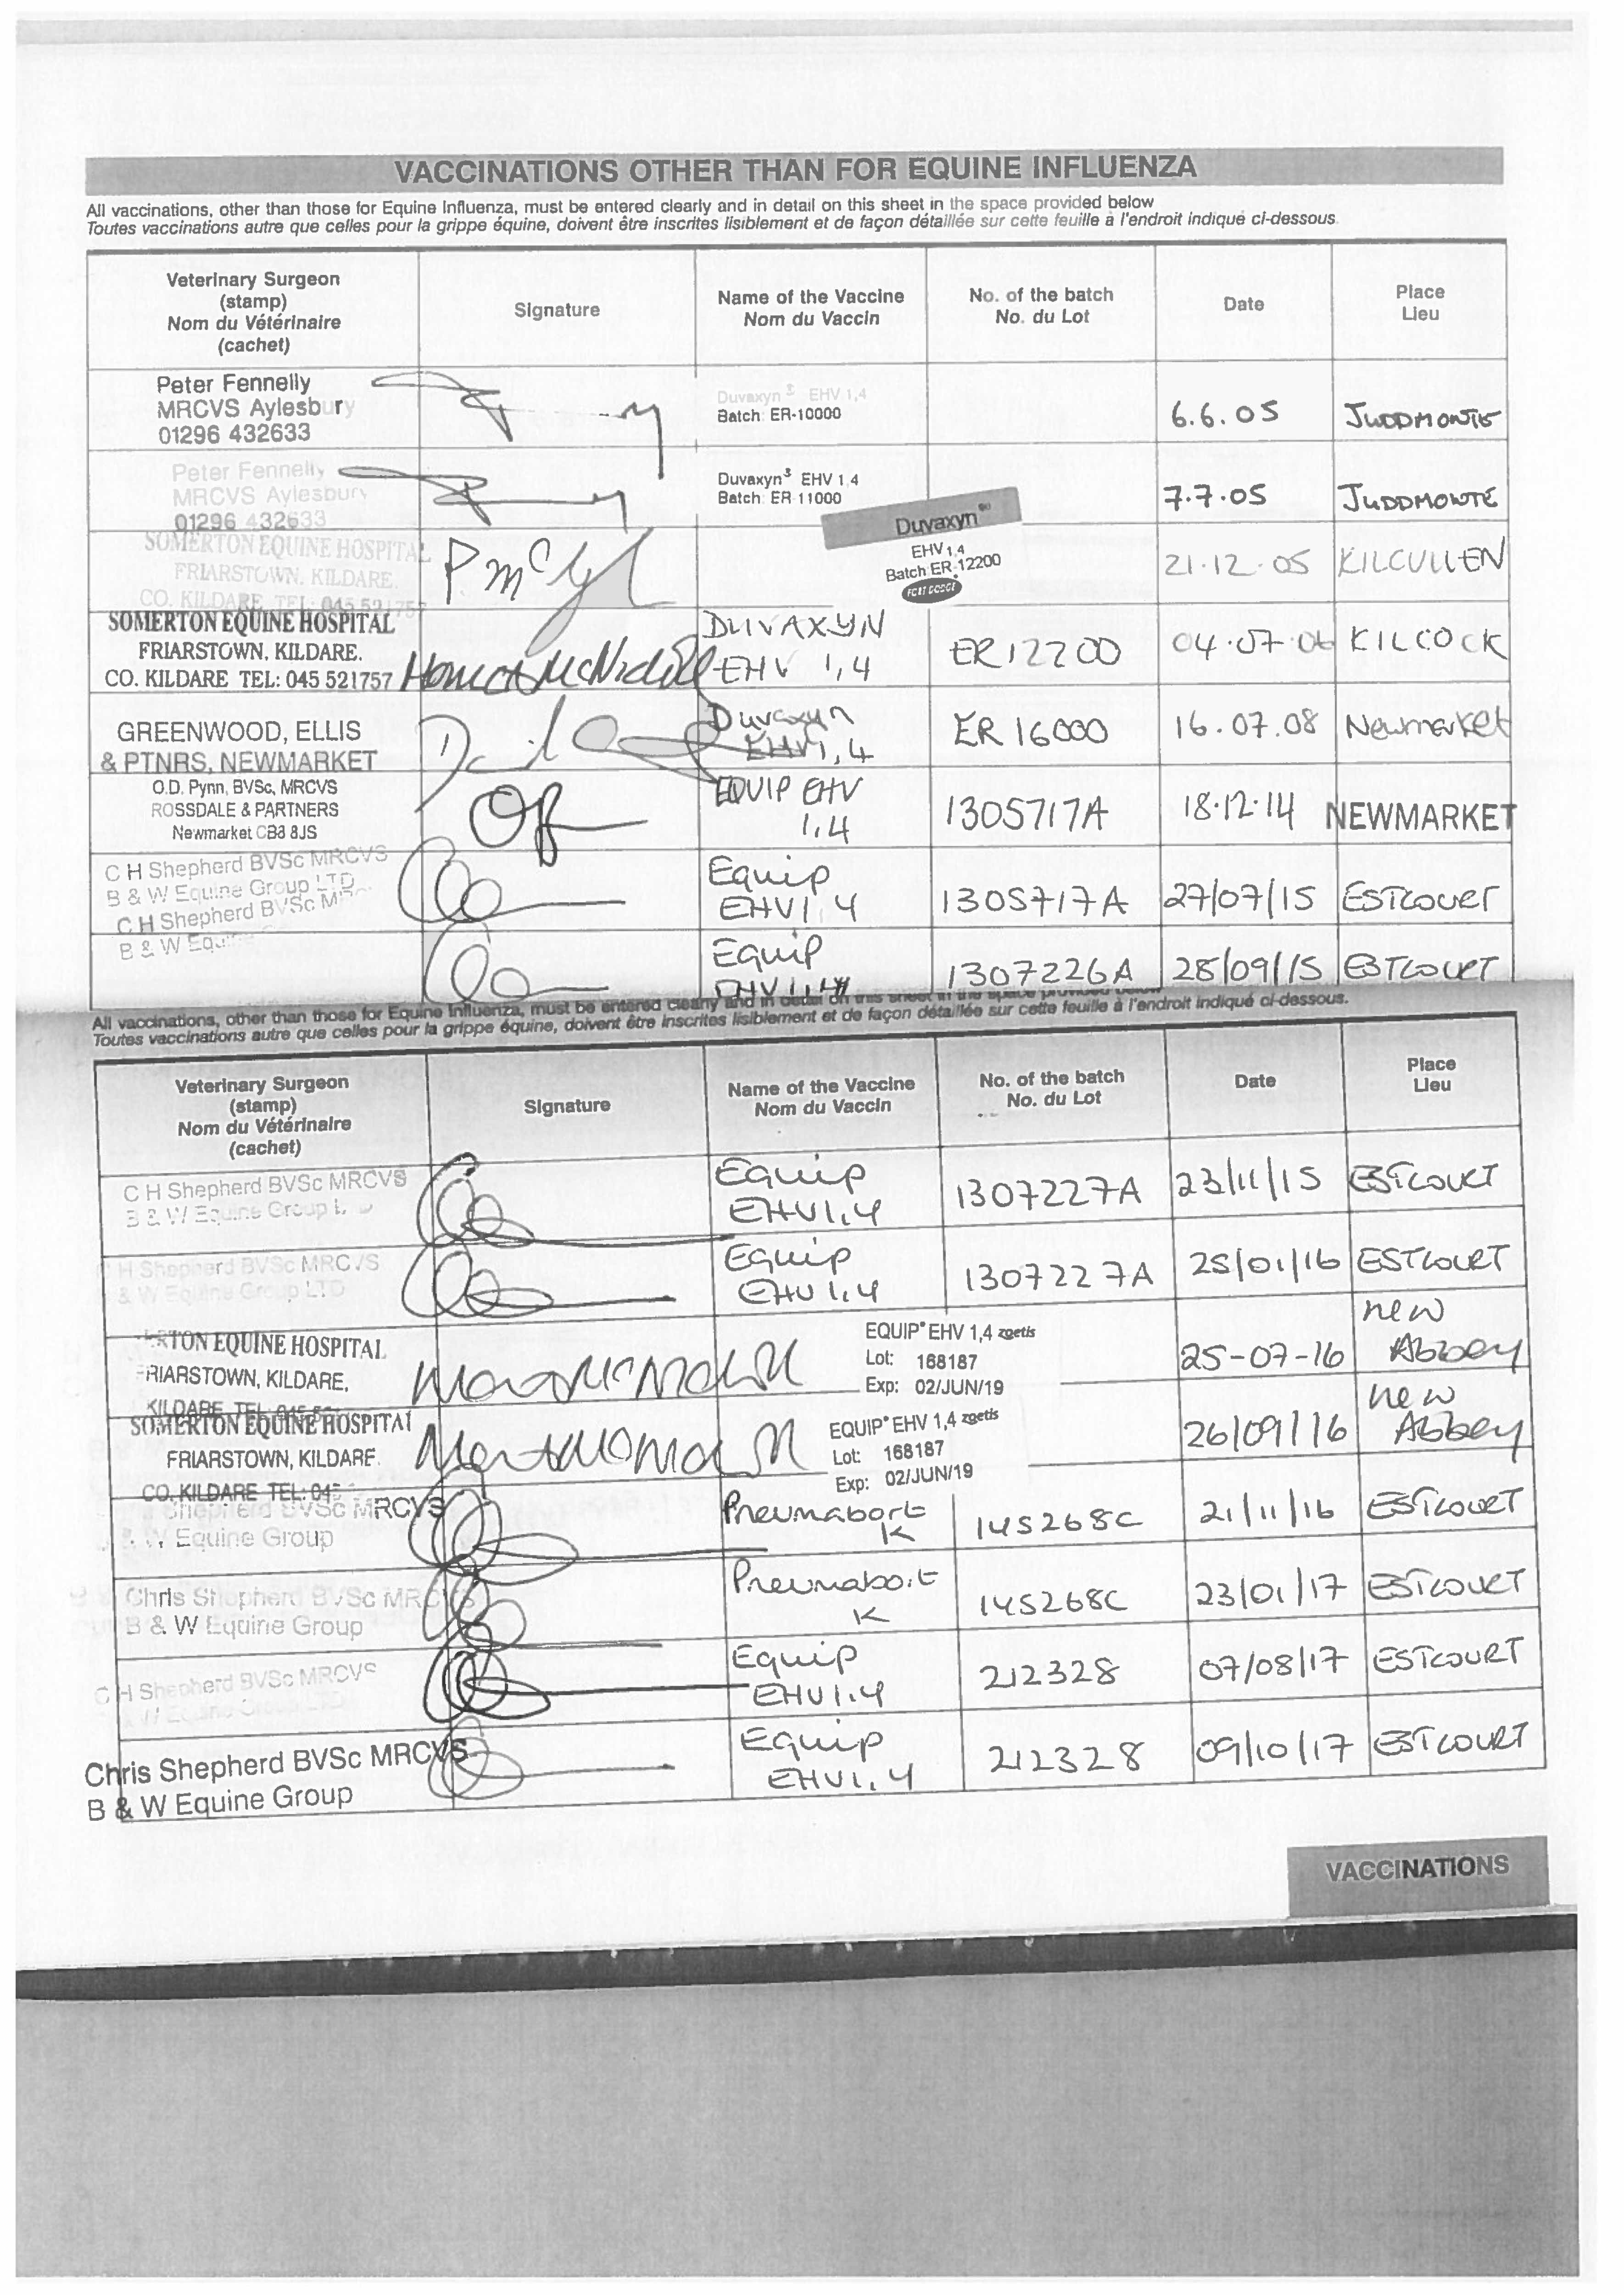 VACCINATIONS OTHER THAN FOR EQUINE INFLUENZA
All vaccinations, other than those for Equine Influenza, must be entered clearly and in detail on this sheet in the space provided below
Toutes vaccinations autre que celles pour la grippe équine, doivent être inscrites lisiblement et de façon détaillée sur cette feuille à l'endroit indiqué ci-dessous.
Veterinary Surgeon
(stamp)
Nom du Vétérinaire
(cachet)
Signature
Name of the Vaccine
Nom du Vaccin
No. of the batch
No. du Lot
Date
Place
Lieu
Peter Fennelly
MRCVS Aylesbury
01296 432633
Duvaxyn EHV 1,4
Batch: ER-10000
6.6.05
JUDDMONTE
Peter Fennelly
MRCVS Aylesbury
01296 432633
Duvaxyn EHV 1,4
Batch: ER 11000
7.7.05
JUDDMONTE
SOMERTON EQUINE HOSPITAL
FRIARSTOWN, KILDARE.
CO. KILDARE TEL: 045 521757
Duvaxyn
EHV 1,4
Batch: ER-12200
FORT DODGE
21.12.05
KILCULLEN
SOMERTON EQUINE HOSPITAL
FRIARSTOWN, KILDARE.
CO. KILDARE TEL: 045 521757
DUVAXYN
EHV 1,4
ER12200
04.07.06
KILCOCK
GREENWOOD, ELLIS
& PTNRS, NEWMARKET
Duvaxyn
EHV1,4
ER 16000
16.07.08
Newmarket
O.D. Pynn, BVSc, MRCVS
ROSSDALE & PARTNERS
Newmarket CB8 8JS
EQUIP EHV
1,4
1305717A
18.12.14
NEWMARKET
C H Shepherd BVSc MRCVS
B & W Equine Group LTD
Equip
EHV1,4
1305717A
27/07/15
ESTCOURT
C H Shepherd BVSc MRC
B & W Equ
Equip
EHV1,4
1307226A
28/09/15
ESTCOURT
All vaccinations, other than those for Equine Influenza, must be entered clearly and in detail on this sheet in the space provided below
Toutes vaccinations autre que celles pour la grippe équine, doivent être inscrites lisiblement et de façon détaillée sur cette feuille à l'endroit indiqué ci-dessous.
Veterinary Surgeon
(stamp)
Nom du Vétérinaire
(cachet)
Signature
Name of the Vaccine
Nom du Vaccin
No. of the batch
No. du Lot
Date
Place
Lieu
C H Shepherd BVSc MRCVS
B & W Equine Group
Equip
EHV1,4
1307227A
23/11/15
ESTCOURT
H Shepherd BVSc MRCVS
& W Equine Group LTD
Equip
EHV1,4
1307227A
25/01/16
ESTCOURT
RTON EQUINE HOSPITAL
FRIARSTOWN, KILDARE,
KILDARE TEL: 045
EQUIP EHV 1,4 zoetis
Lot: 168187
Exp: 02/JUN/19
25-07-16
new
Abbey
SOMERTON EQUINE HOSPITAL
FRIARSTOWN, KILDARE.
CO. KILDARE TEL: 045
EQUIP EHV 1,4 zoetis
Lot: 168187
Exp: 02/JUN/19
26/09/16
new
Abbey
Shepherd BVSc MRCVS
& W Equine Group
Pneumabort
K
145268C
21/11/16
ESTCOURT
Chris Shepherd BVSc MRCVS
B & W Equine Group
Pneumabort
K
145268C
23/01/17
ESTCOURT
C H Shepherd BVSc MRCVS
& W Equine Group LTD
Equip
EHV1,4
212328
07/08/17
ESTCOURT
Chris Shepherd BVSc MRCVS
B & W Equine Group
Equip
EHV1,4
212328
09/10/17
ESTCOURT
VACCINATIONS